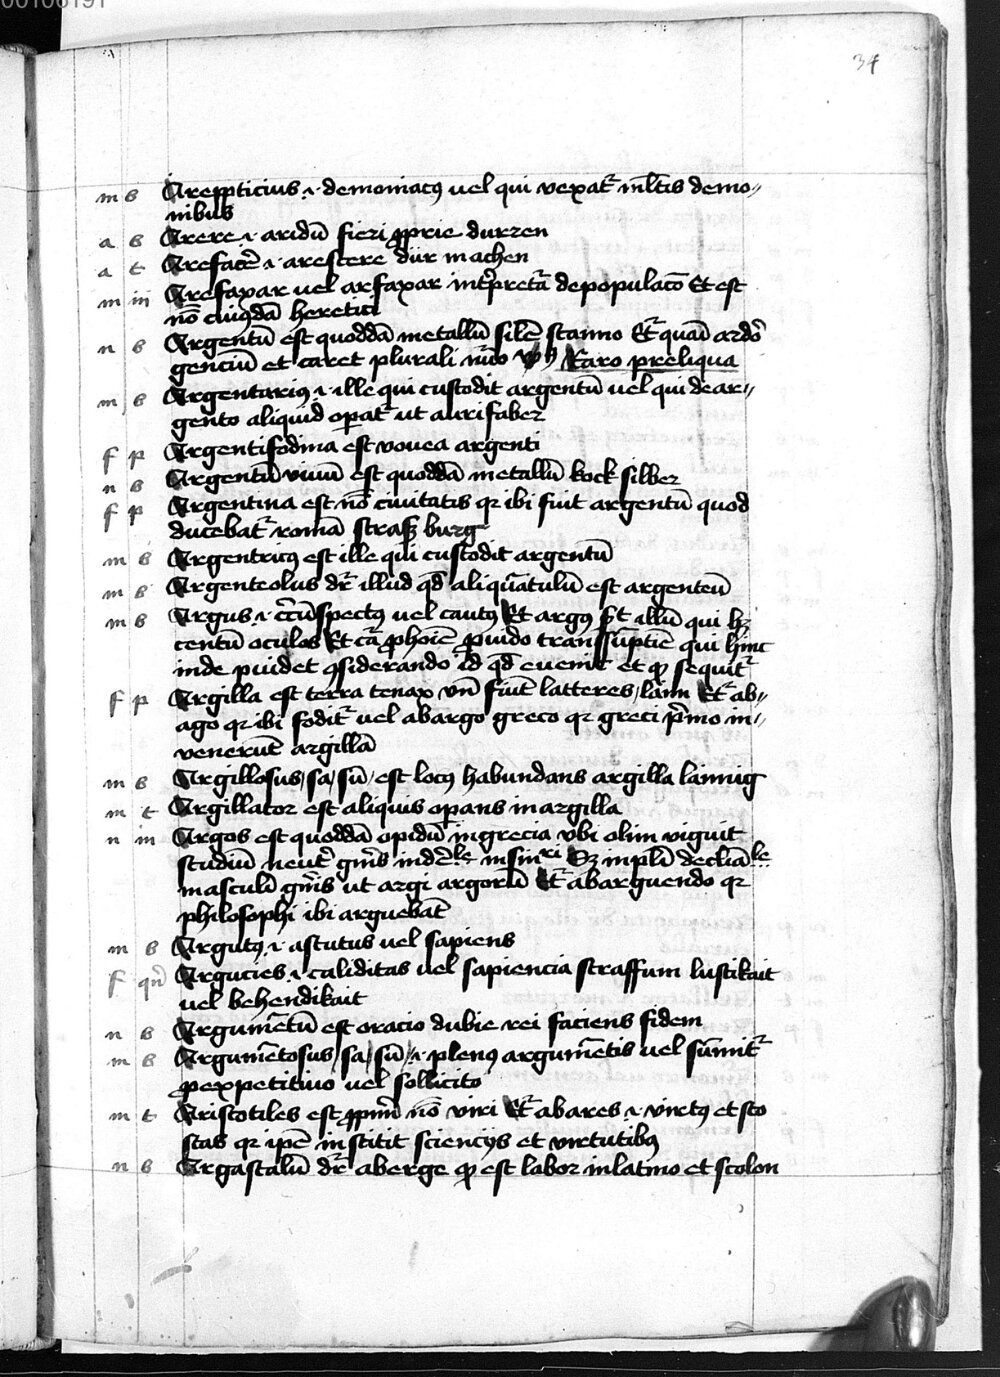 00106191
34
m b Areppticius .i. demoniacꝰ uel qui vexat᷑ ml̄tis demo⸗
nibus
a b Arere .i. aridū fieri ꝓprie durren
a t Arefacē .i. arescere dür machen
m iii Arefaxar uel arfaxar int͛pretat᷑ depopulatō Et est
nō cuiꝰdā heretici
n b Argentū est quoddā metallū silē stanno Et᷑ ardō
genciū et caret plurali nūo Raro preliqua
m b Argentariꝰ .i. ille qui custodit argentū uel qui de ar⸗
gento aliquid oꝑat᷑ ut aurifaber
f p Argentifodina est vouea argenti
n b Argentū viuū est quoddā metallū kock silber
f p Argentina est nō ciuitatis qr ibi fuit argentū quod
ducebat᷑ romā straſz burg
m b Argentricꝰ est ille qui custodit argentū
m b Argenteolus dr̄ illud qd̄ aliquātulū est argenteū
m b Argus .i. cc̄ūspectꝰ uel cautꝰ Et argꝰ illū qui hꝫ
centū oculos Et cā ꝓ hoīe ꝓuido transsūptiē qui hinc
inde puidet ꝯsiderando id qd̄ euenit et qꝫ sequit᷑
f p Argilla est terra tenax vn̄ fiūt latteres / laim Et᷑ ab⸗
ago qr ibi fodit᷑ uel ab argo greco qr greci p͛mo in⸗
venerūt argillā
m b Argillosus / sa / sū / est locꝰ habundans argilla laimig
m t Argillator est aliquis oꝑans in argilla
n in Argos est quoddā opidū in grecia vbi olim viguit
studiū neut͛ gn̄is indecle in sin̄ri Sꝫ in pl̄i decliāle
masculi gn̄is ut argi argorū Et᷑ ab arguendo qr
philosophi ibi arguebāt
m b Argutꝰ .i. astutus uel sapiens
f qn̄ Argucies .i. caliditas uel sapiencia straffum lustikait
uel behendikait
n b Argumētū est oracio dubie rei faciens fidem
m b Argumētosus / sa / sū / .i. plenꝰ argumētis uel sūmit᷑
ꝓ expetitiuo uel sollicito
m t Aristotiles est ꝓpriū nō viri Et᷑ ab ares .i. virtꝰ et sto
stas qr ip̄e institit scienciis et virtutibꝰ
n b Argastalū dr̄ ab erge qꝫ est labor in latino et scolon